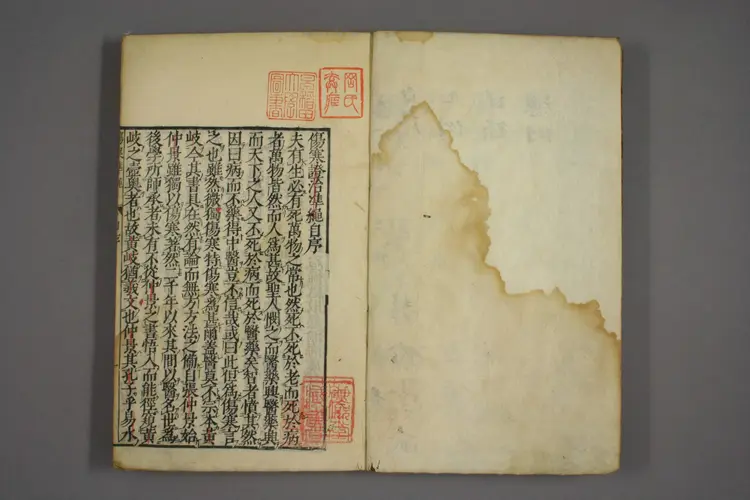 傷寒證治準繩自序
夫有生必有死萬物之常也然死不死於老而死於病
者萬物皆然而人為甚故聖人憫之而醫藥興醫藥興
而天下之人又不死於病而死於醫藥矣智者憤其然
因曰病而不藥得中醫豈不信哉或曰此但為傷寒言
之也雖然微獨傷寒特傷寒為甚爾蓋醫莫不宗本黃
岐今其書具在然有論而無方方法之備自張仲景始
仲景雖獨以傷寒著然二千年以來其間以醫名世為
後學所師承者未有不從仲景之書悟入而能徑窺黃
岐之壼奧者也故黃岐猶羲文也仲景其孔子乎易水